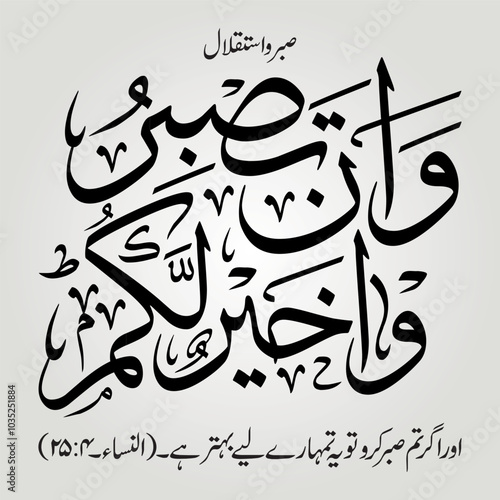 صبر و استقلال
وَاَنْ تَصْبِرُ
وْا خَيْرٌ لَّكُمْ ؕ
اور اگر تم صبر کرو تو یہ تمہارے لیے بہتر ہے۔ (النساء۔ ۴:۲۵)
Adobe Stock | #1035251884